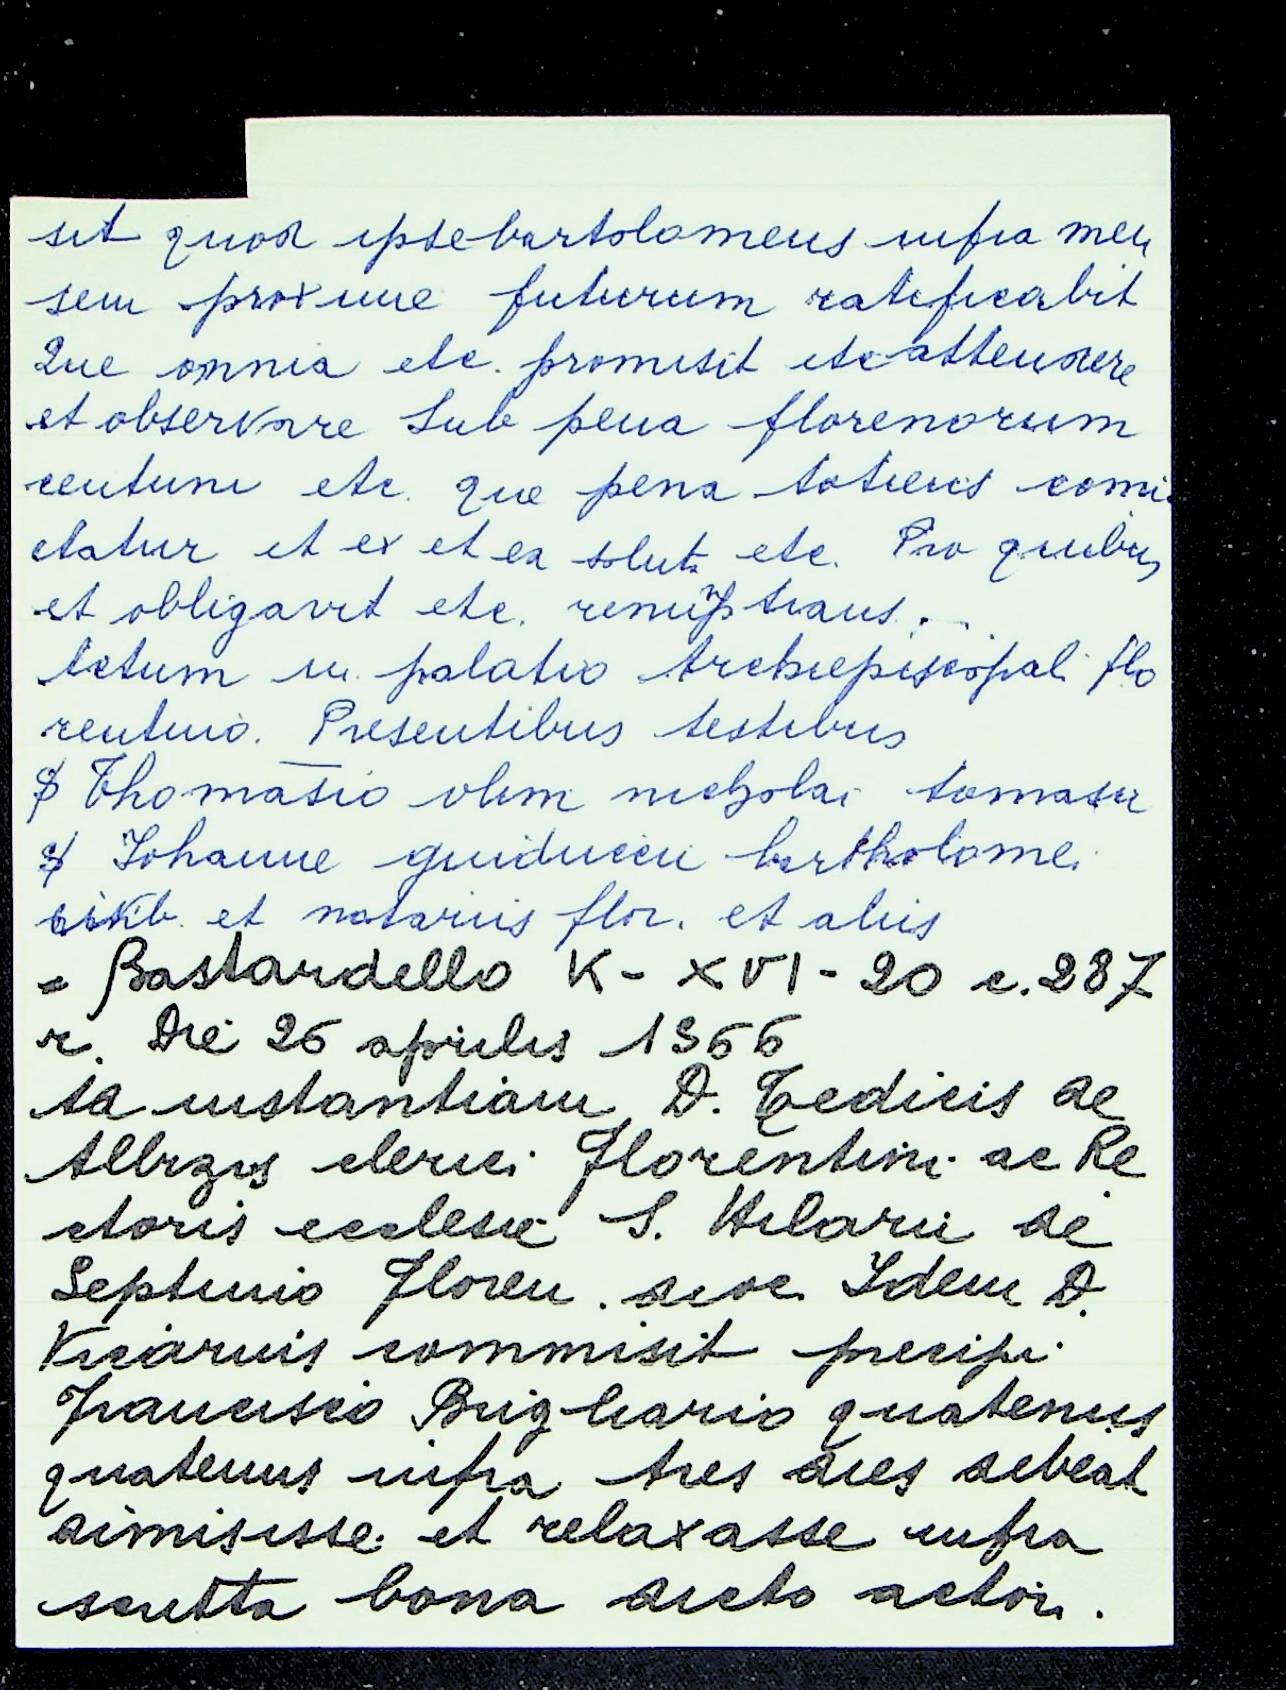 sit quod ipse bartolomeus infra men
sem proxime futurum ratificabit
Que omnia etc. promisit etc attendere
et observare Sub pena florenorum
centum etc. que pena totiens comi
ctatur et ex et ea solut. etc. Pro quibus
et obligavit etc.
Actum in palatio Archiepiscopali flo
rentino. Presentibus testibus
S Thomasio olim nicholai tomasii
S Iohanne guiduccii bartholomei
et notariis flor. et aliis
= Bastardello K - XVI - 20 c. 287
r. Die 26 aprilis 1366
Ad instantiam D. Tedicis de
clerici Florentini ac Re
ctoris ecclesie S. Hilarii de
Septimio Floren. dioc. Idem D.
Vicarius commisit precipi
Francisco quatenus
quatenus infra tres dies debeat
dimisisse et relaxasse infra
scritta bona dicto actori.